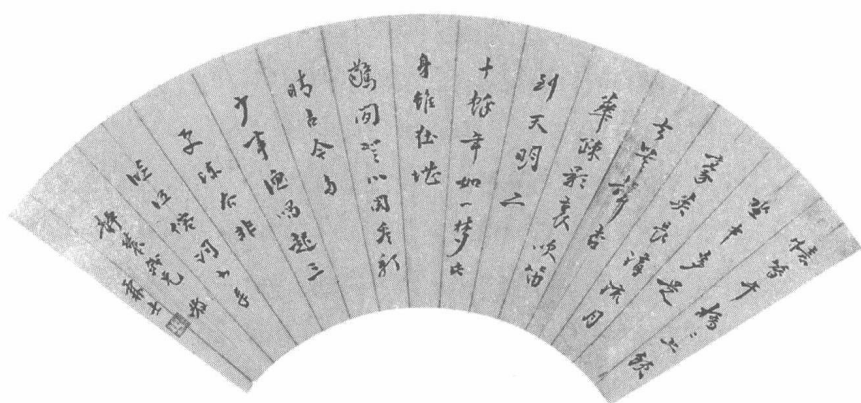 憶昔午橋〻上飲
坐中多是
豪英長溝流月
去無聲杏
華疎影裏吹笛
到天明二
十餘年如一夢此
身雖在堪
驚閒登小閣看新
晴古今多
少事漁唱起三
更陳去非
臨江僊詞